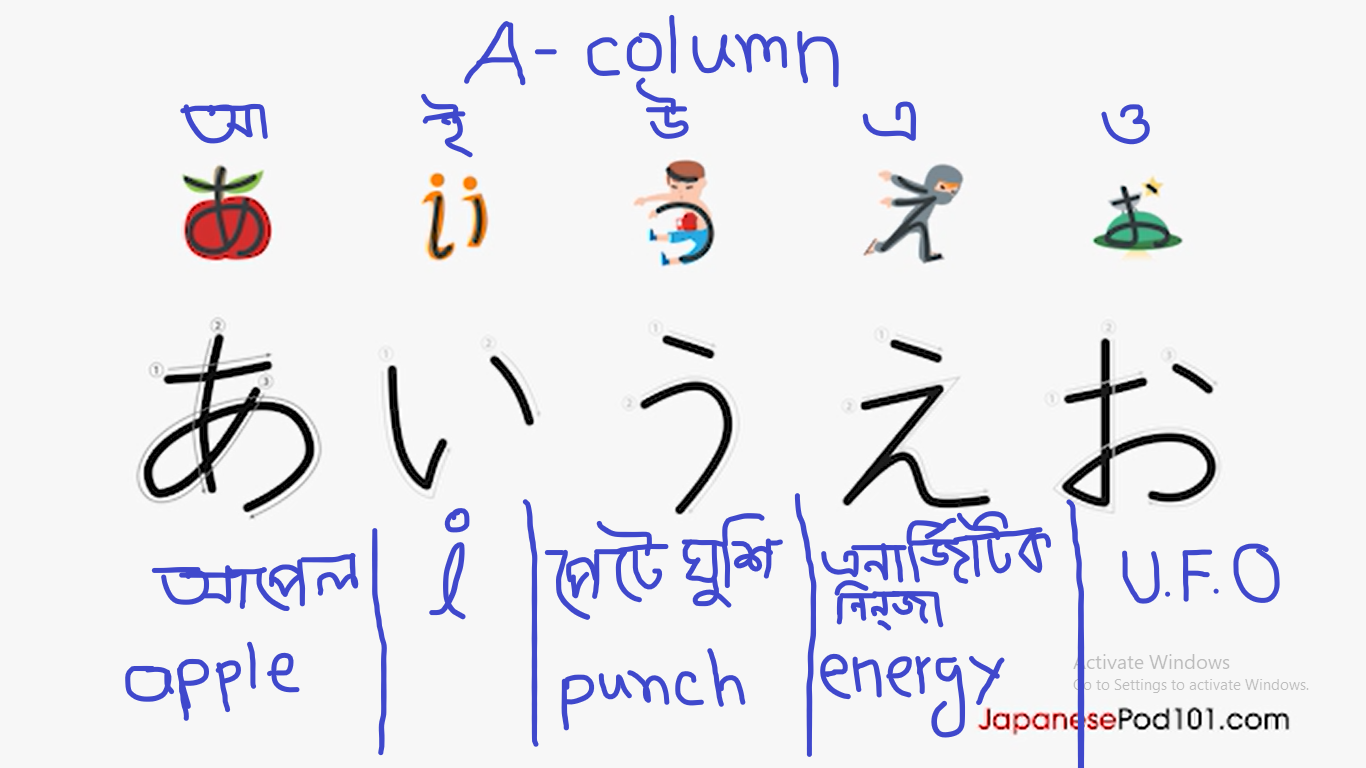 A- column
আ ই উ এ ও
あ い う え お
আপেল i পেটে ঘুশি এনার্জেটিক U.F.O
নিন্জা
apple punch energy
Activate Windows
Go to Settings to activate Windows.
JapanesePod101.com